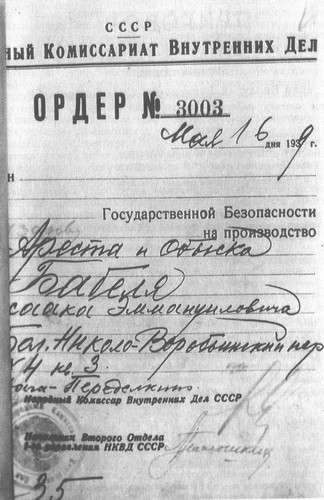 СССР
ный Комиссариат Внутренних Дел
ОРДЕР № 3003
Мая 16 дня 1939 г.
Государственной Безопасности
на производство
Ареста и обыска
Бабеля
саака Эммануиловича
Бол. Николо-Воробьинский пер
4 кв. 3.
Переделкино
Народный Комиссар Внутренних Дел СССР
Начальник Второго Отдела
управления НКВД СССР
35